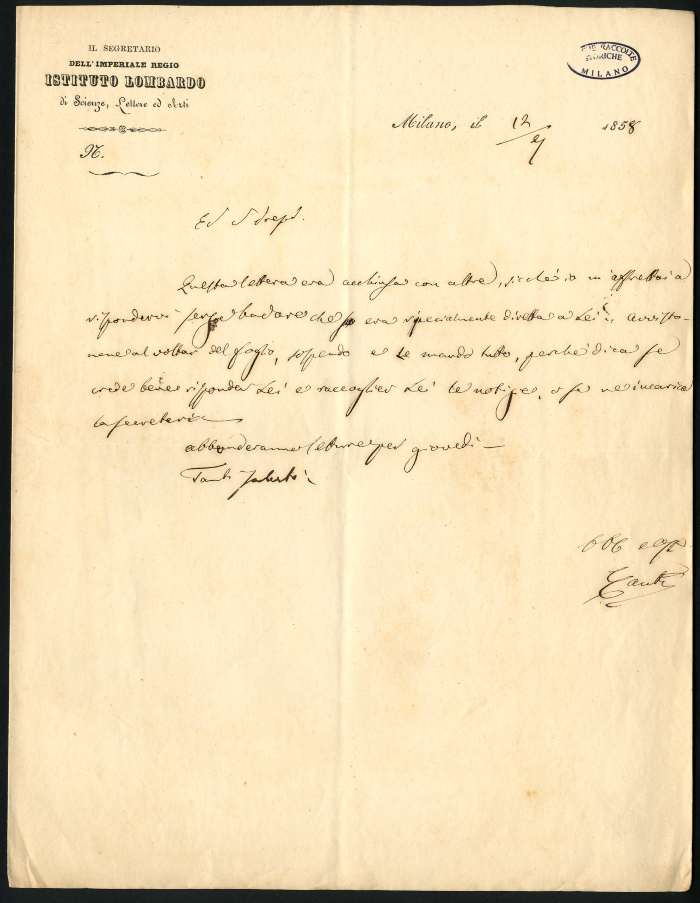 IL SEGRETARIO
DELL'IMPERIALE REGIO
ISTITUTO LOMBARDO
di Scienze, Lettere ed Arti
N.
RACCOLTE
STORICHE
MILANO
Milano, il 12 1858
Questa lettera era acchiusa con altre, sicchè io m'affrettai a
rispondervi senza badare che era specialmente diretta a Lei. Avvisto-
mene al voltar del foglio, sospendo e Le mando tutto, perchè dica se
crede bene risponder Lei e raccoglier Lei le notizie, o se ne incarica
la segreteria
abbonderanno letture per giovedì —
Tanti saluti
obb e aff
Cantù